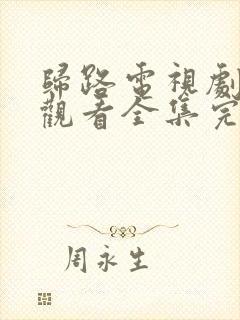 歸路電視劇
觀看全集完
周永生